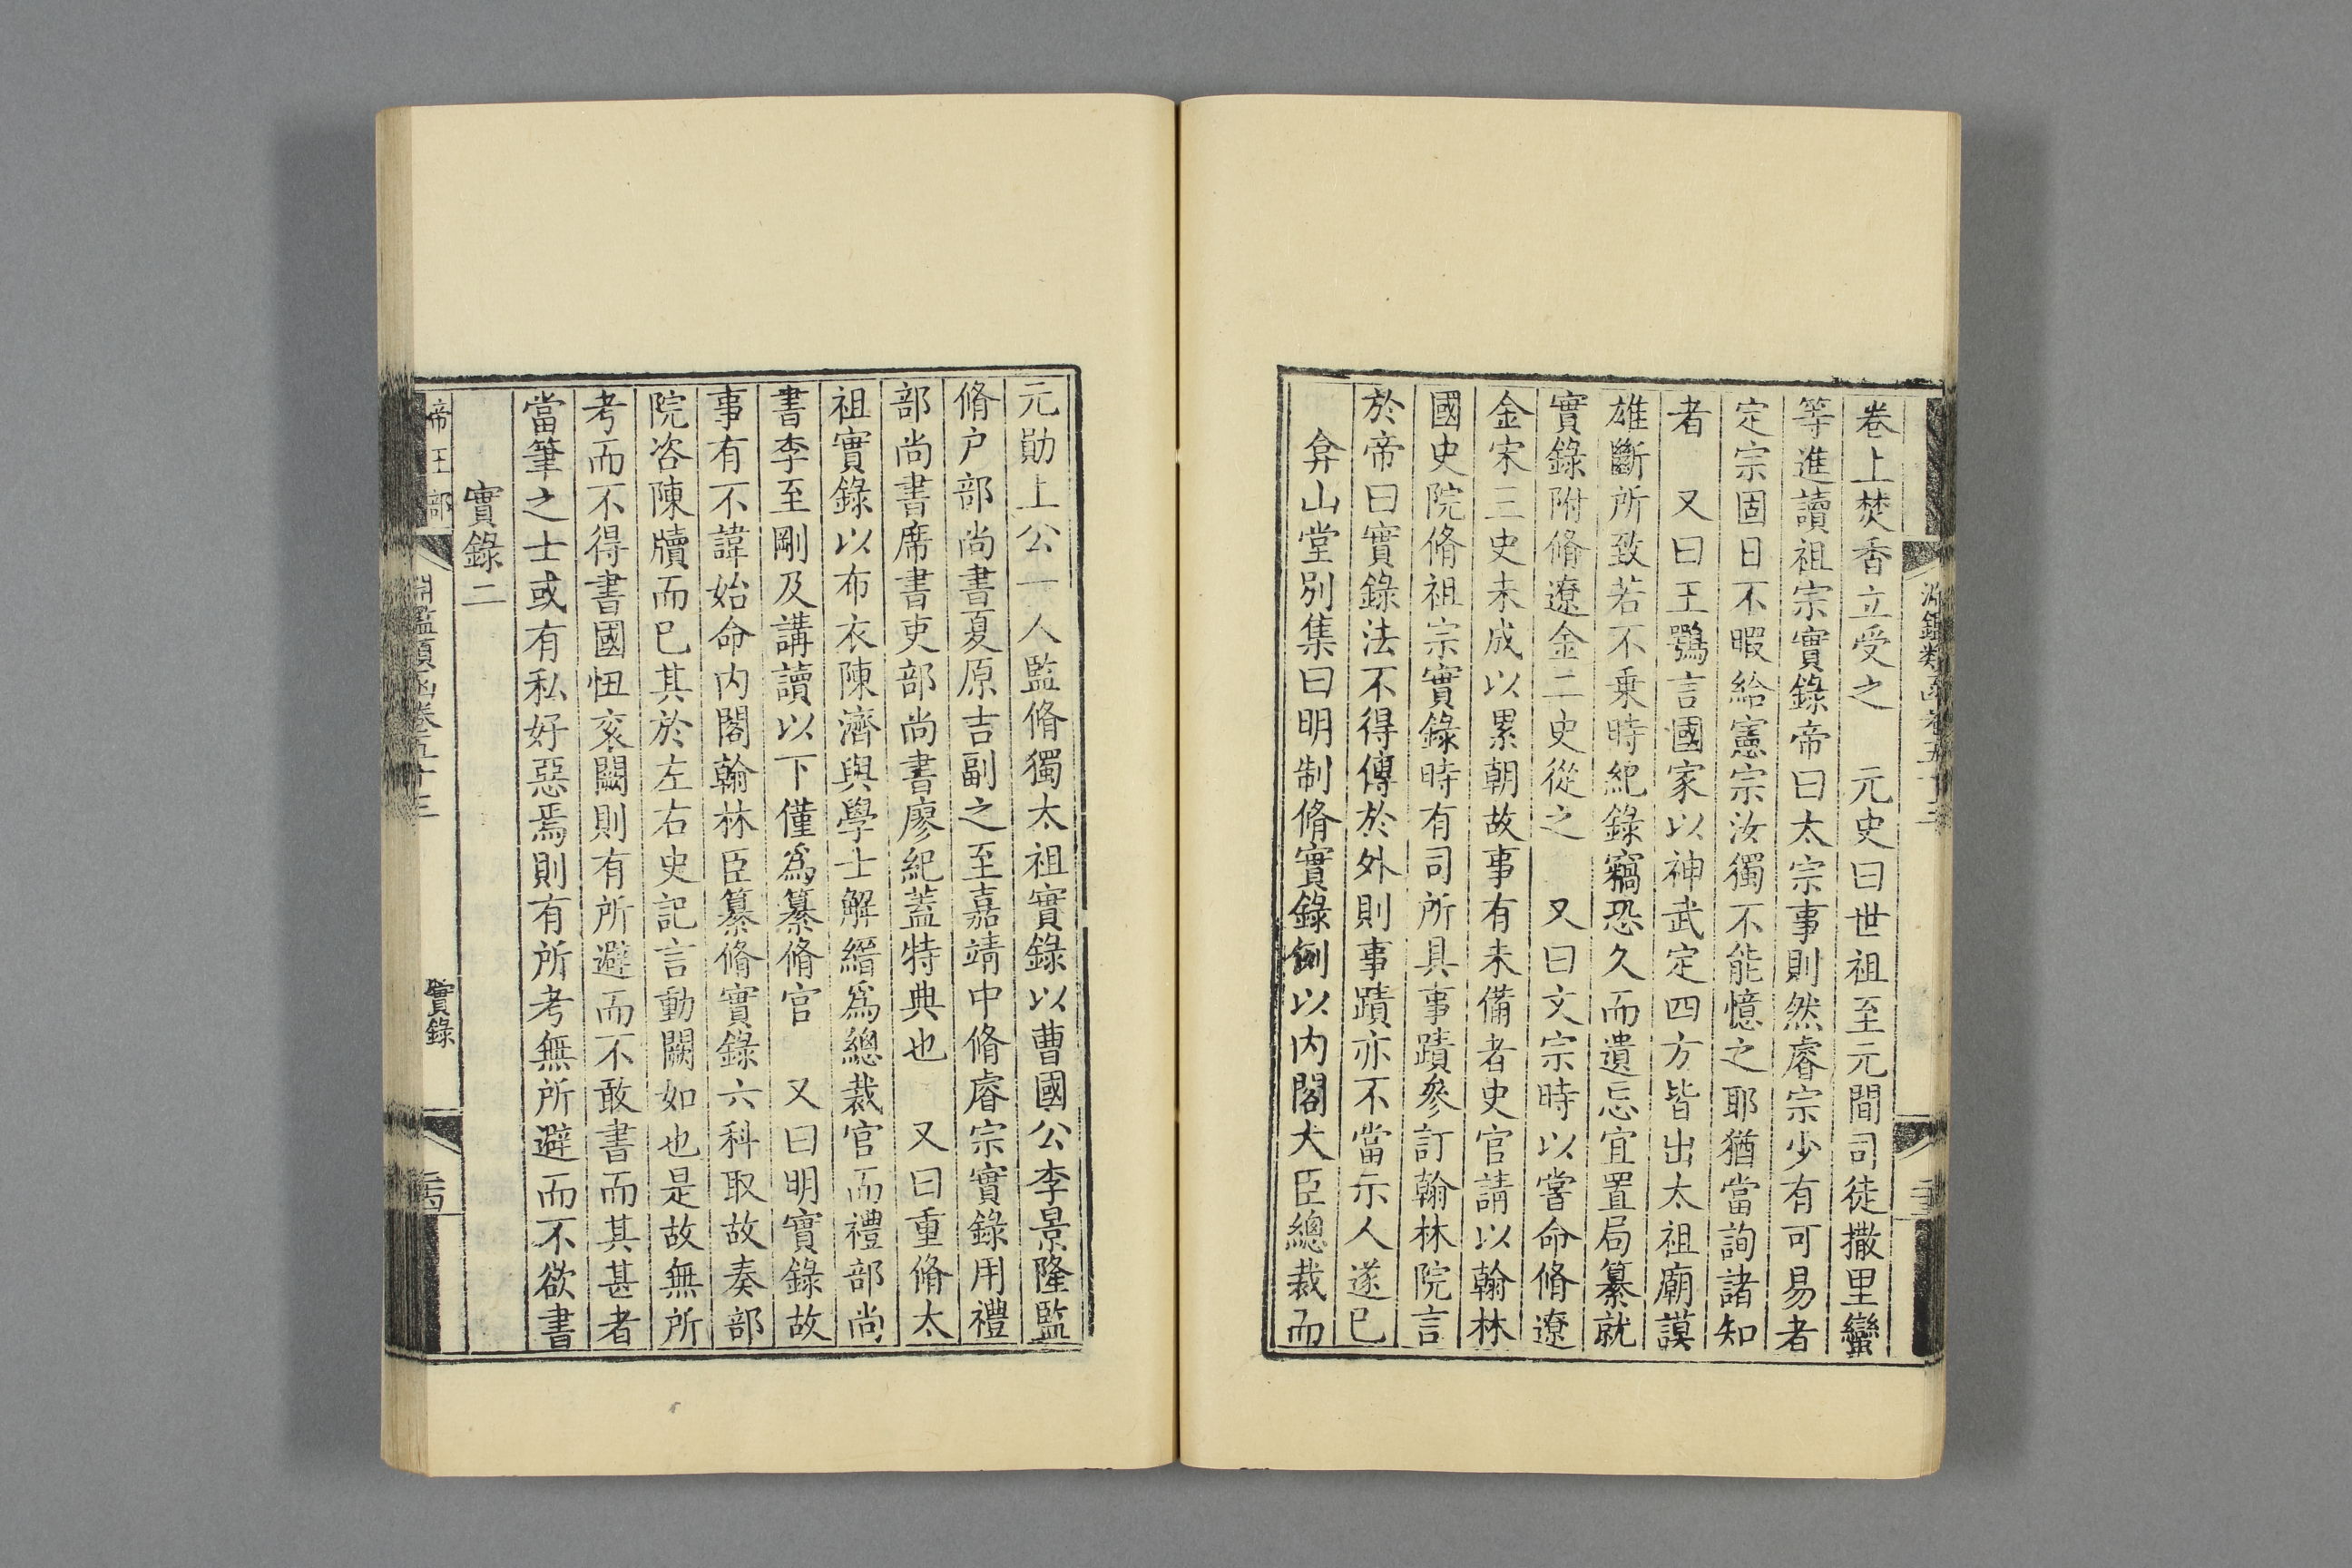 卷上焚香立受之　元史曰世祖至元間司徒撒里蠻
等進讀祖宗實錄帝曰太宗事則然睿宗少有可易者
定宗固日不暇給憲宗汝獨不能憶之耶猶當詢諸知
者　又曰王鶚言國家以神武定四方皆出太祖廟謨
雄斷所致若不乗時紀錄竊恐久而遺忘宜置局纂就
實錄附脩遼金二史從之　又曰文宗時以嘗命脩遼
金宋三史未成以累朝故事有未備者史官請以翰林
國史院脩祖宗實錄時有司所具事蹟參訂翰林院言
於帝曰實錄法不得傳於外則事蹟亦不當示人遂已
弇山堂別集曰明制脩實錄例以内閣大臣總裁而
元勛上公一人監脩獨太祖實錄以曹國公李景隆監
脩户部尚書夏原吉副之至嘉靖中脩睿宗實錄用禮
部尚書席書吏部尚書廖紀蓋特典也　又曰重脩太
祖實錄以布衣陳濟與學士解縉爲總裁官而禮部尚
書李至剛及講讀以下僅爲纂脩官　又曰明實錄故
事有不諱始命内閣翰林臣纂脩實錄六科取故奏部
院咨陳牘而已其於左右史記言動闕如也是故無所
考而不得書國忸衮闕則有所避而不敢書而其甚者
當筆之士或有私好惡焉則有所考無所避而不欲書
實錄二
帝王部
淵鑑類函卷五十三
實錄